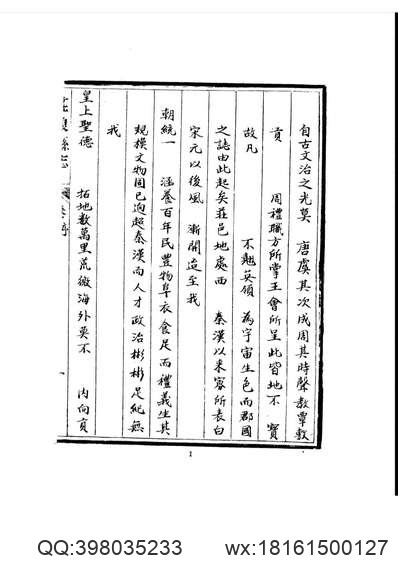 自古文治之光莫 唐虞其次成周其時聲教覃敷
貢 周禮職方所掌王會所呈此皆地不 寶
故凡 不魁英領 為宇宙生色而郡國
之誌由此起矣莊邑地處西 秦漢以来寥所表白
宋元以後風 漸開迨至我
朝統一 涵養百年民豐物阜衣食足而禮義生其
規模文物固已逈超秦漢而人才政治彬彬足紀無
我
皇上聖德 拓地數萬里荒徼海外莫不 内向貢
縣志
1
QQ:398035233 wx:18161500127